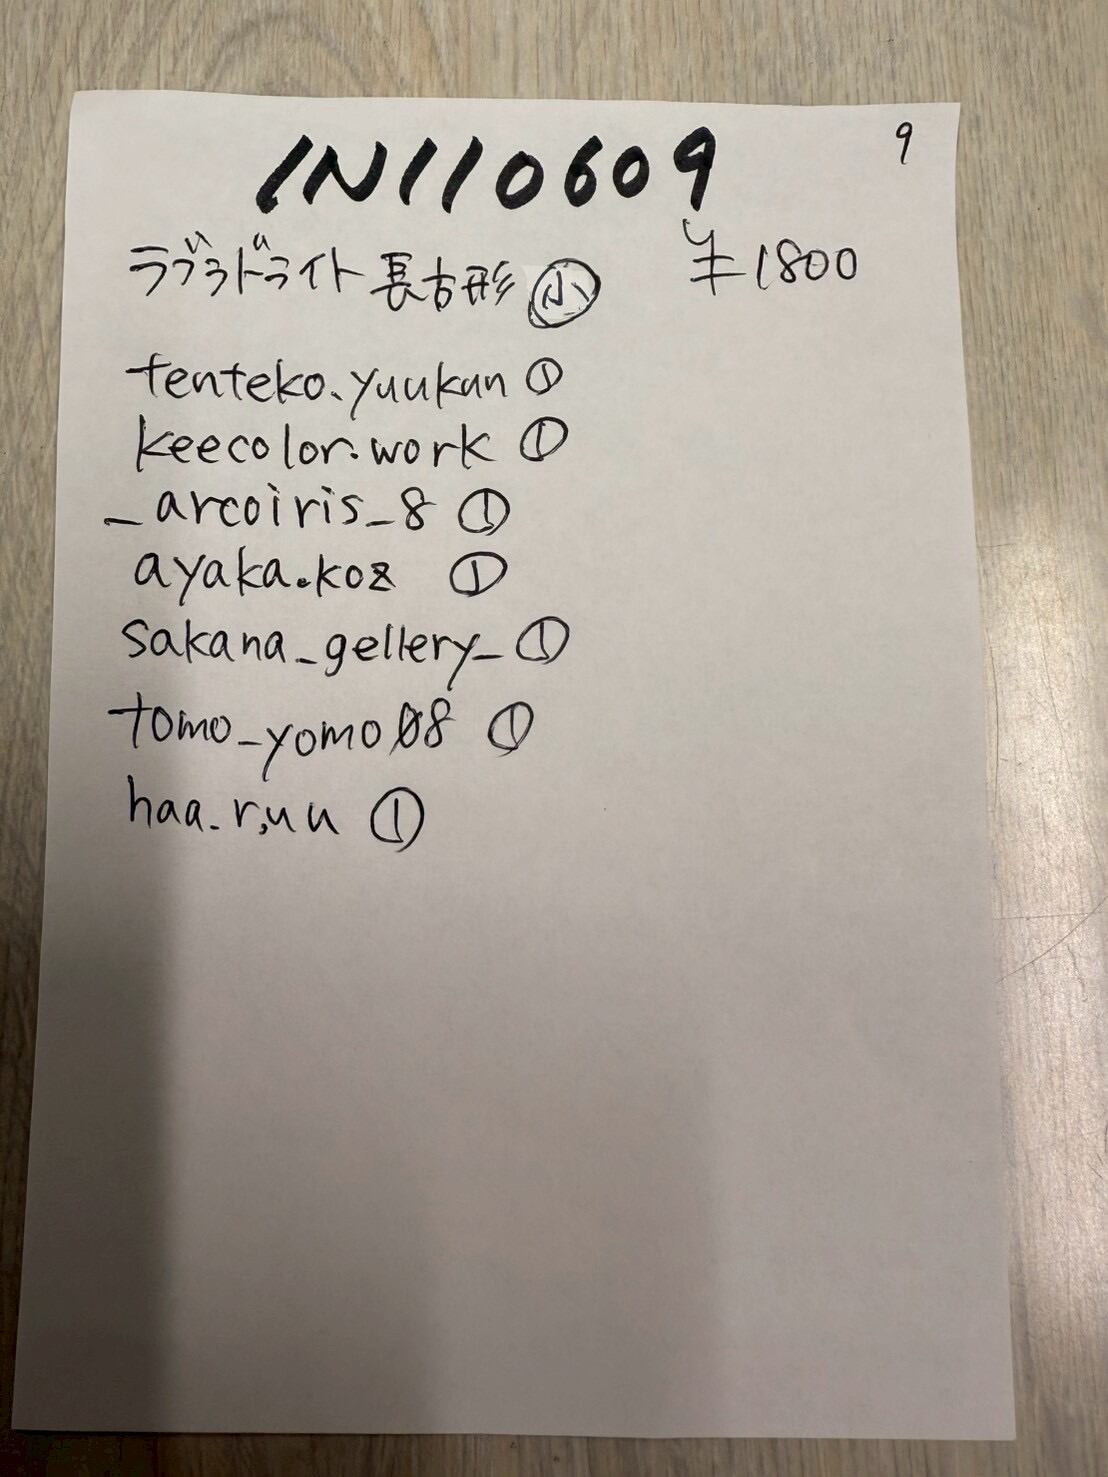 IN110609
9
ラブラドライト 長方形 小
¥1800
tenteko.yuukun ①
keecolor.work ①
_arcoiris_8 ①
ayaka.koz ①
sakana_gellery_ ①
tomo_yomo08 ①
haa.r,uu ①